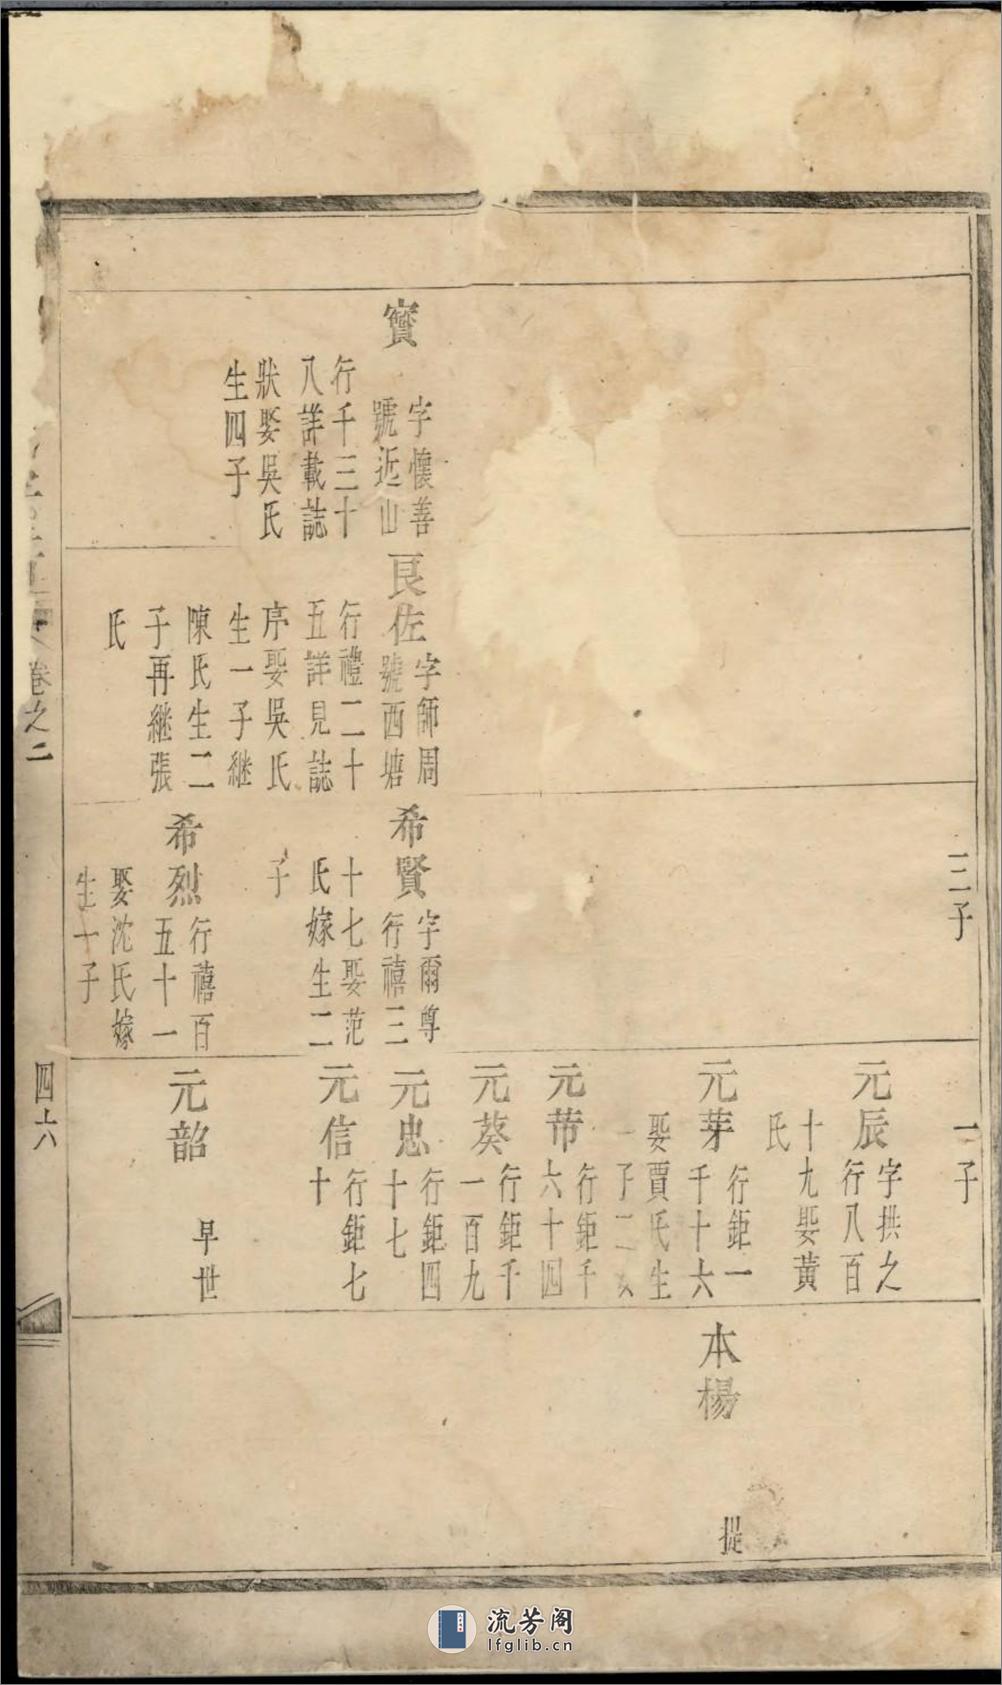 實
字懷善
號近山
行千三十
八詳載誌
狀娶吳氏
生四子
良佐
字師周
號西塘
行禮二十
五詳見誌
序娶吳氏
生一子継
陳氏生二
子再継張
氏
三子
希賢
字爾尊
行禧三
十七娶范
氏嫁生二
子
希烈
行禧百
五十一
娶沈氏嫁
生一子
一子
元辰
字拱之
行八百
十九娶黃
氏
元芽
行鉅一
千十六
娶賈氏生
一子二女
元芾
行鉅千
六十四
元葵
行鉅千
一百九
元忠
行鉅四
十七
元信
行鉅七
十
元韶
早世
本楊
提
卷之二
四十六
流芳阁
lfglib.cn